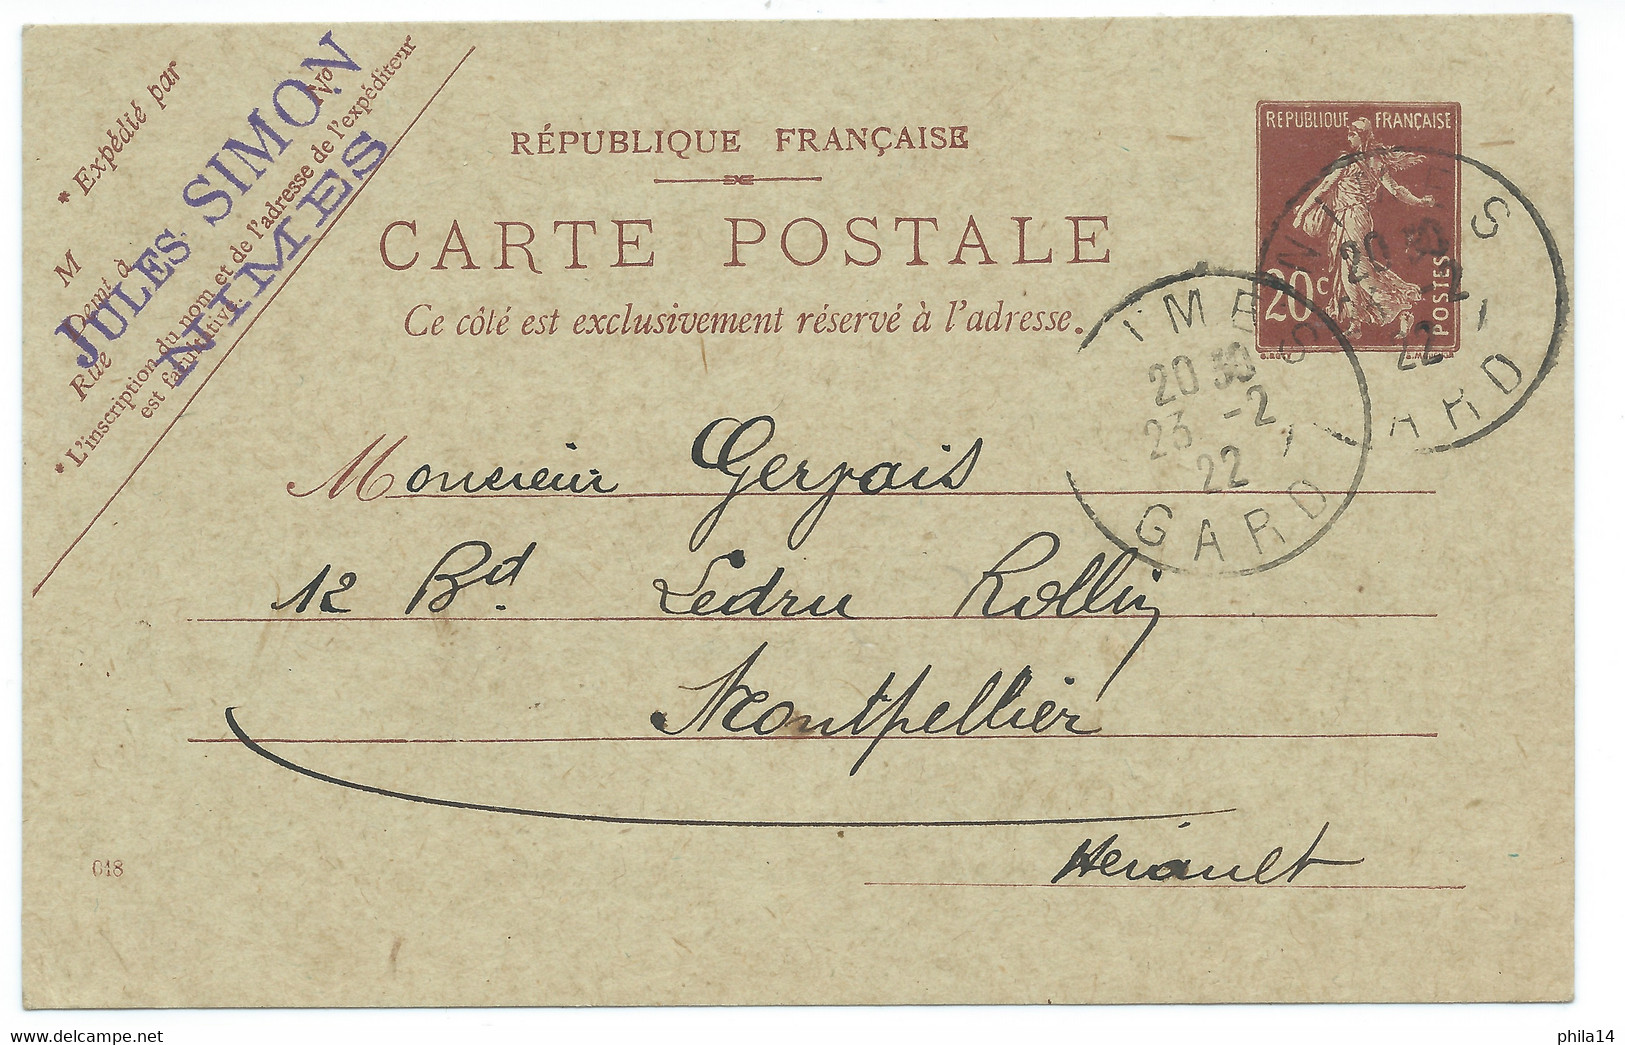 * Expédié par
M
Demt à
Rue
No
* L'inscription du nom et de l'adresse de l'expéditeur
est facultative.
JULES SIMON
NIMES
RÉPUBLIQUE FRANÇAISE
CARTE POSTALE
Ce côté est exclusivement réservé à l'adresse.
REPUBLIQUE FRANÇAISE
20c
POSTES
NIMES
20 30
-2
22
GARD
NIMES
20 30
23 -2
22
GARD
Monsieur Gervais
12 Bd. Ledru Rollin
Montpellier
Hérault
018
www.delcampe.net
phila14